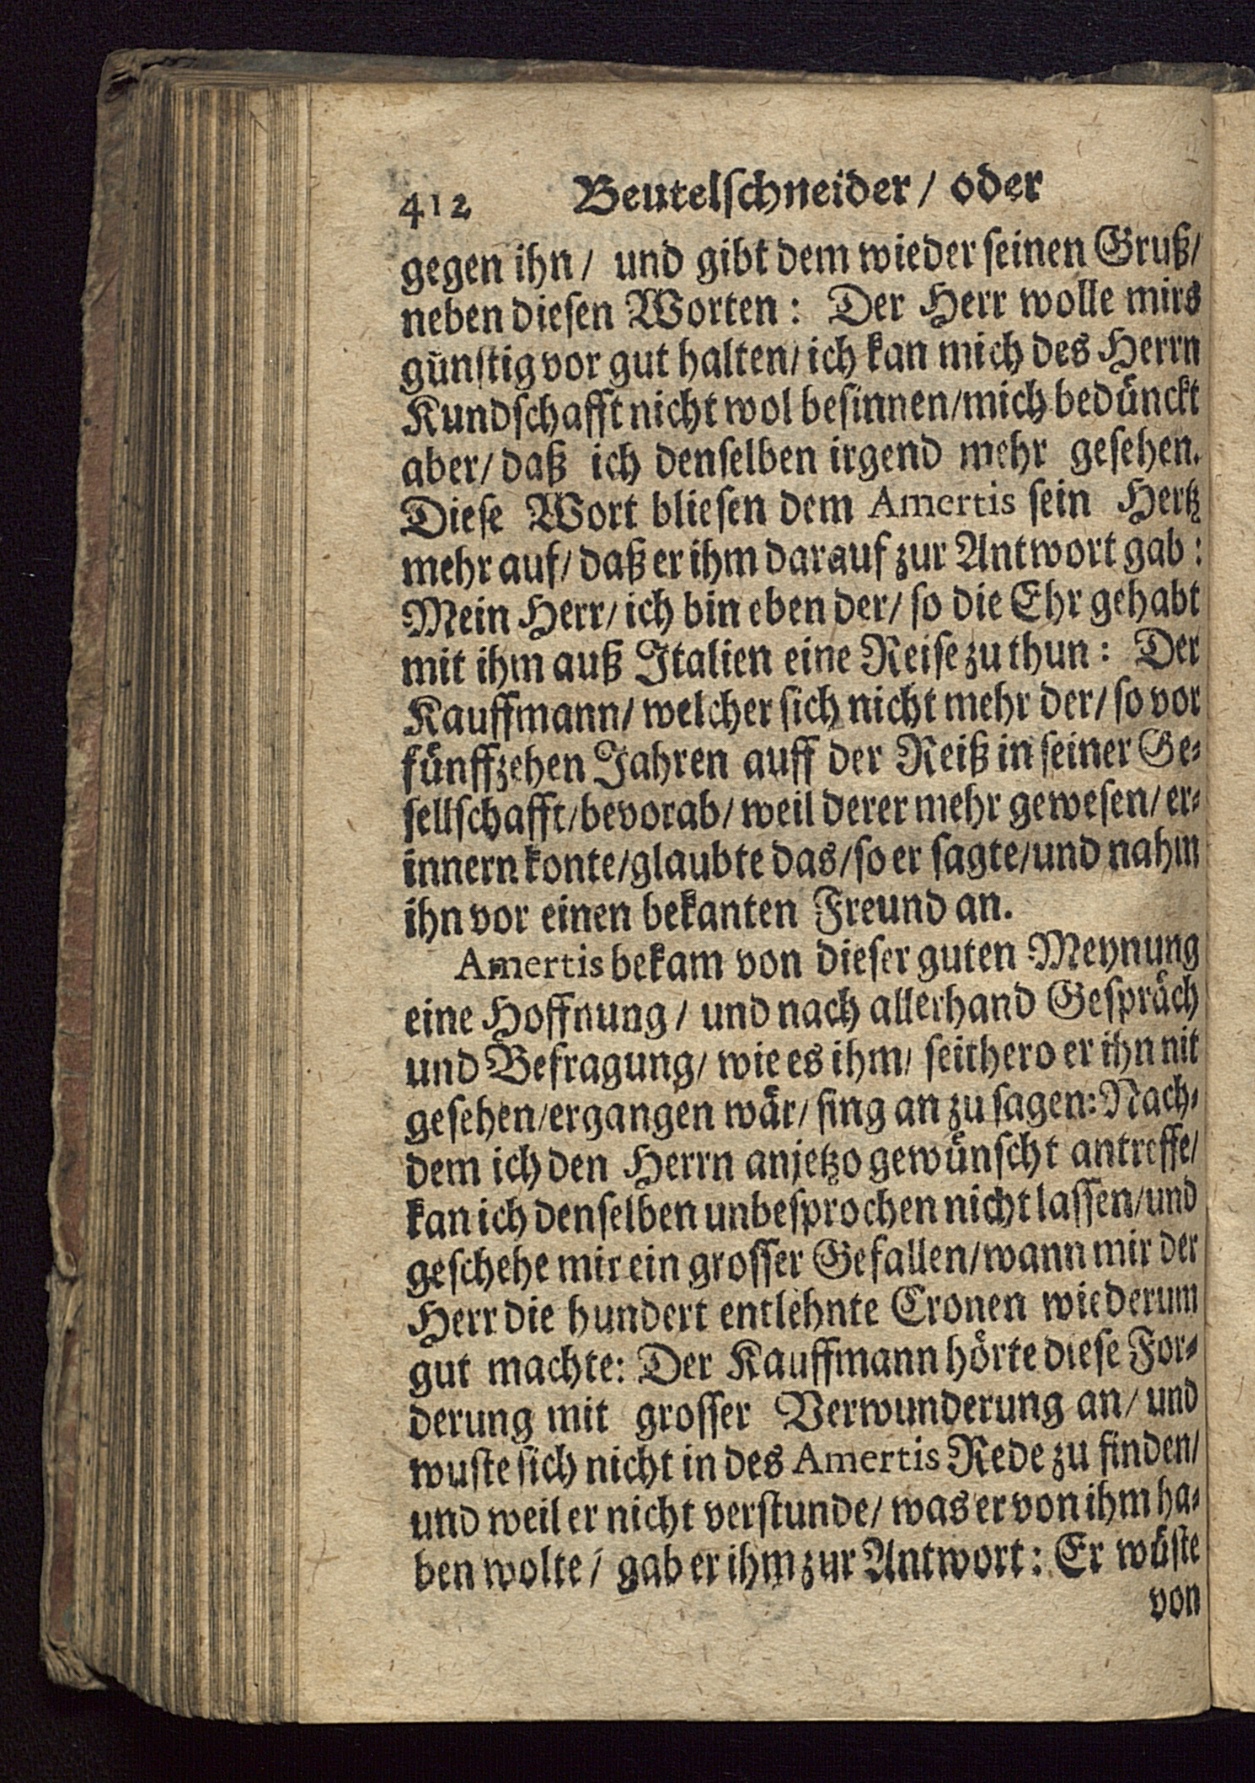 412 Beutelschneider / oder
gegen ihn / und gibt dem wieder seinen Gruß /
neben diesen Worten: Der Herr wolle mirs
günstig vor gut halten / ich kan mich des Herrn
Kundschafft nicht wol besinnen / mich bedünckt
aber / daß ich denselben irgend mehr gesehen.
Diese Wort bliesen dem Amertis sein Hertz
mehr auf / daß er ihm darauf zur Antwort gab:
Mein Herr / ich bin eben der / so die Ehr gehabt
mit ihm auß Italien eine Reise zu thun: Der
Kauffmann / welcher sich nicht mehr der / so vor
fünffzehen Jahren auff der Reiß in seiner Ge-
sellschafft / bevorab / weil derer mehr gewesen / er-
innern konte / glaubte das / so er sagte / und nahm
ihn vor einen bekanten Freund an.
Amertis bekam von dieser guten Meynung
eine Hoffnung / und nach allerhand Gespräch
und Befragung / wie es ihm / seithero er ihn nit
gesehen / ergangen wär / fing an zu sagen: Nach-
dem ich den Herrn anjetzo gewünscht antreffe /
kan ich denselben unbesprochen nicht lassen / und
geschehe mir ein grosser Gefallen / wann mir der
Herr die hundert entlehnte Cronen wiederum
gut machte: Der Kauffmann hörte diese For-
derung mit grosser Verwunderung an / und
wuste sich nicht in des Amertis Rede zu finden /
und weil er nicht verstunde / was er von ihm ha-
ben wolte / gab er ihm zur Antwort: Er wüste
von